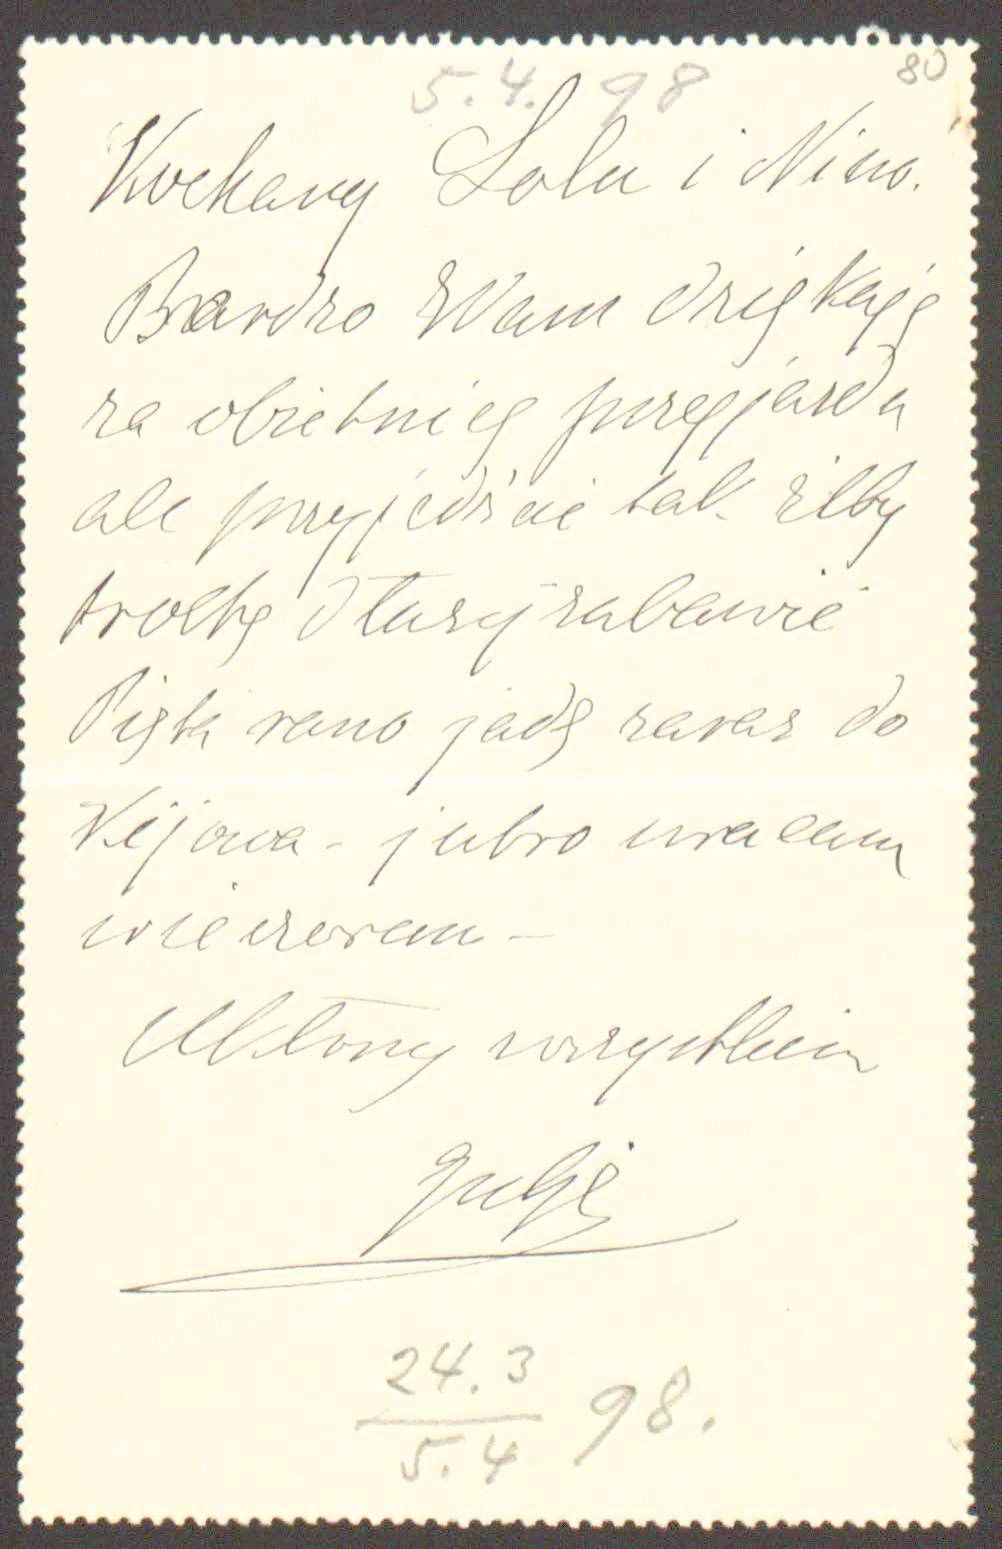 80
5.4. 98
Kochany Lolu i Nino.
Bardzo Wam dziękuję
za obietnicę przyjazdu
ale przyjedźcie tak żeby
trochę dłużej zabawić
Piszę rano jadę zaraz do
Kijowa - jutro wracam
wieczorem -
Ukłony wszystkim
24.3
5.4 98.